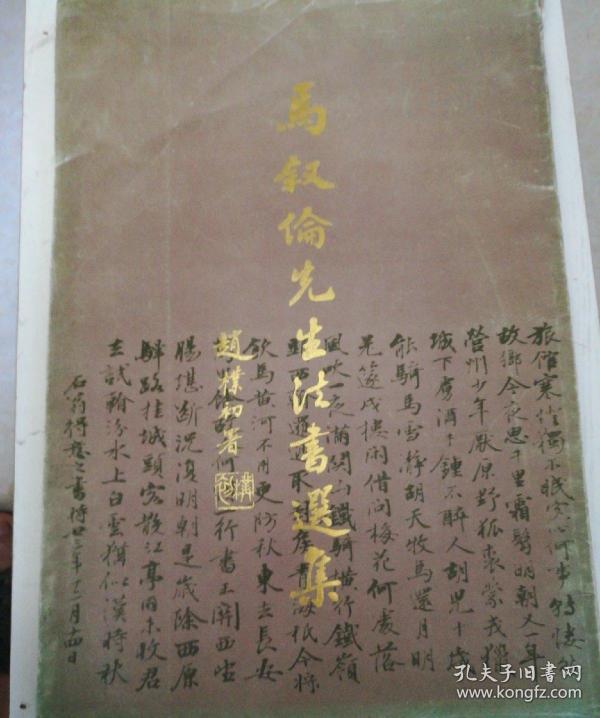 馬叙倫先生法書選集
趙樸初署
旅館寒燈獨不眠客心何事轉悽然
故鄉今夜思千里霜鬢明朝又一年
營州少年厭原野狐裘蒙茸獵
城下虜酒千鍾不醉人胡兒十歲
能騎馬雪靜胡天牧馬還月明
羌笛戍樓閒借問梅花何處落
風吹一夜滿關山鐵騎橫行鐵嶺
頭西邏取封侯青海祇今將
飲馬黃河不用更防秋東去長安
行書王關西望
腸堪斷況復明朝是歲除西原
驛路挂城頭客散江亭雨未收君
去試看汾水上白雲猶似漢時秋
石翁得意之書時廿二年十一月十四日
孔夫子旧书网
www.kongfz.com